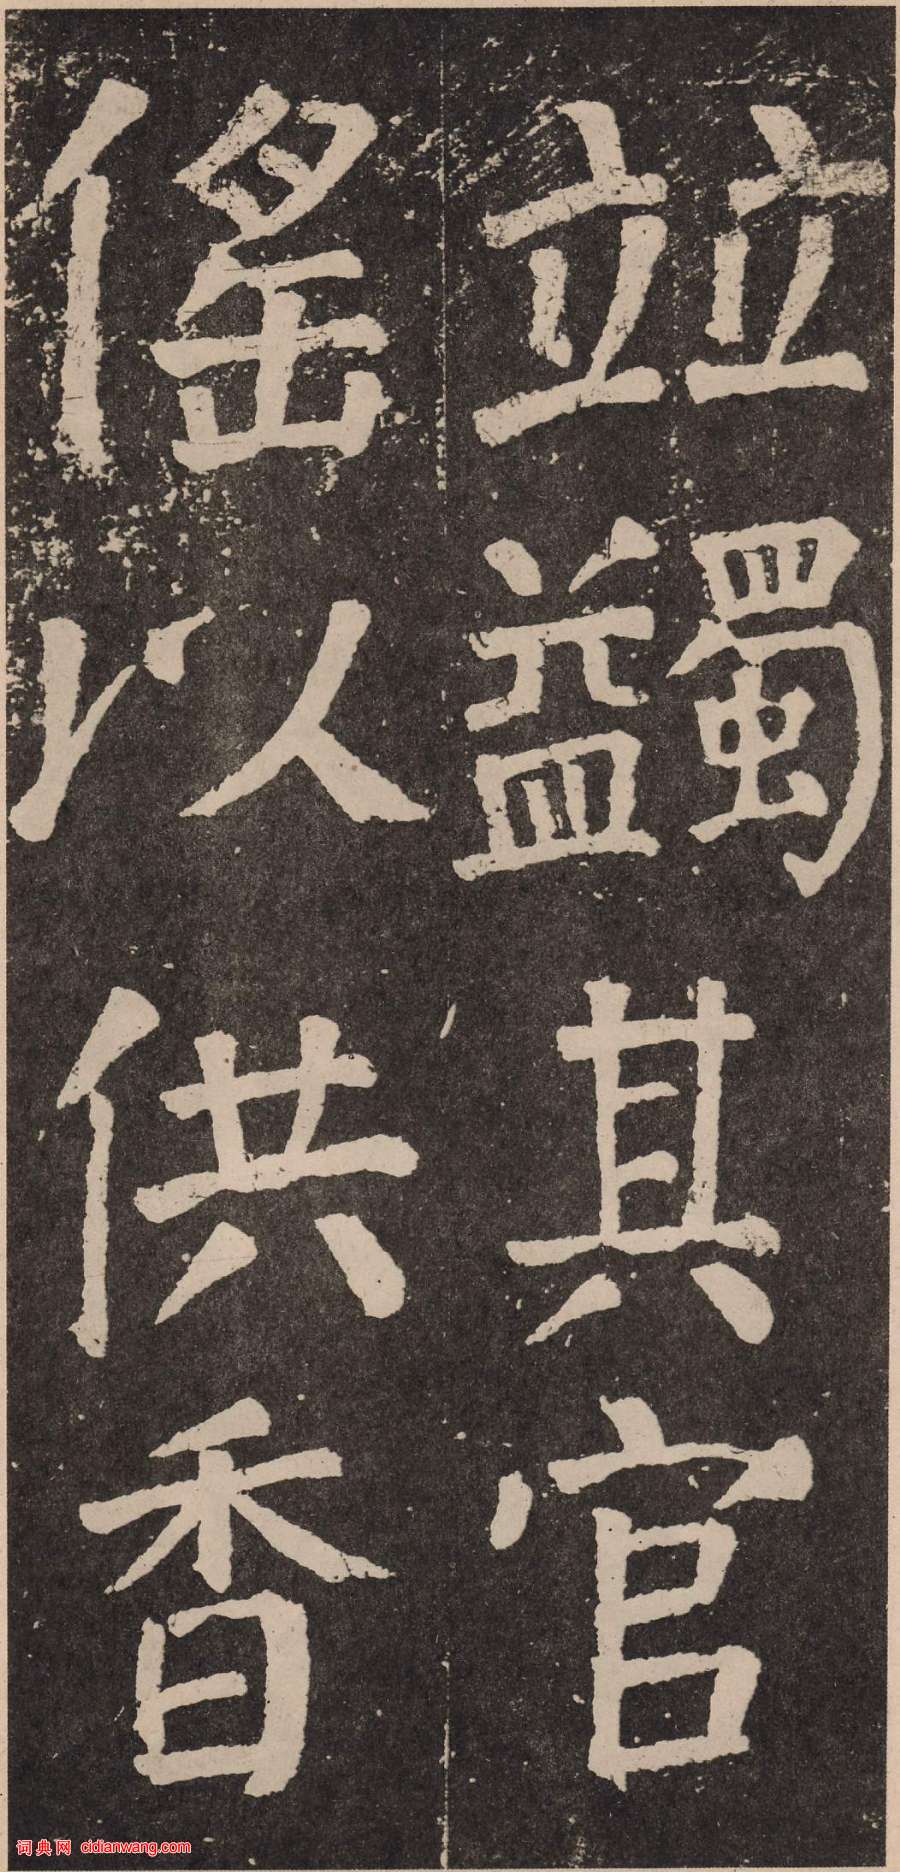 竝蠲其官
傜以供香
词典网 cidianwang.com